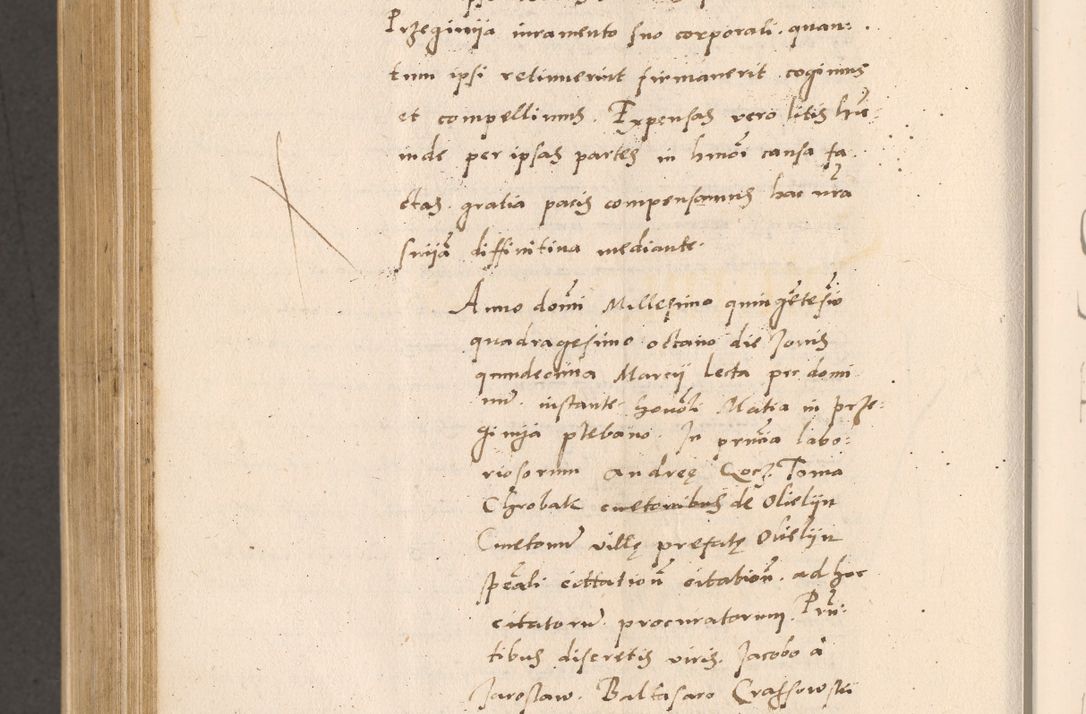 Przeginija iuramento suo corporali. quan:
tum ipsi retinuerint firmauerit cogimus
et compellimus. Expensas vero litis hic
inde per ipsas partes in hmoi causa fa
ctas. gratia pacis compensamus hac nra
sniia diffinitiua mediante.
Anno domi Millesimo quingetesio
quadragesimo octauo die Jouis
quindecima Marcij lecta per domi
num. instante honoli Matia in prze:
ginija plebano. In pntia labo:
riosorum Andreę Coc3. Toma
Chrobak cmetonibus de Olielijn
Cmetonum villę prefatę Olielijn
speali citatione. ad hoc
citatorum. procuratorum. Prn:
tibus discretis viris. Jacobo a
Jaroslaw. Baltasaro